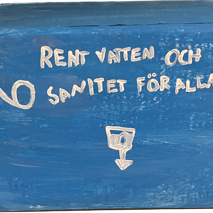 RENT VATTEN OCH
SANITET FÖR ALLA